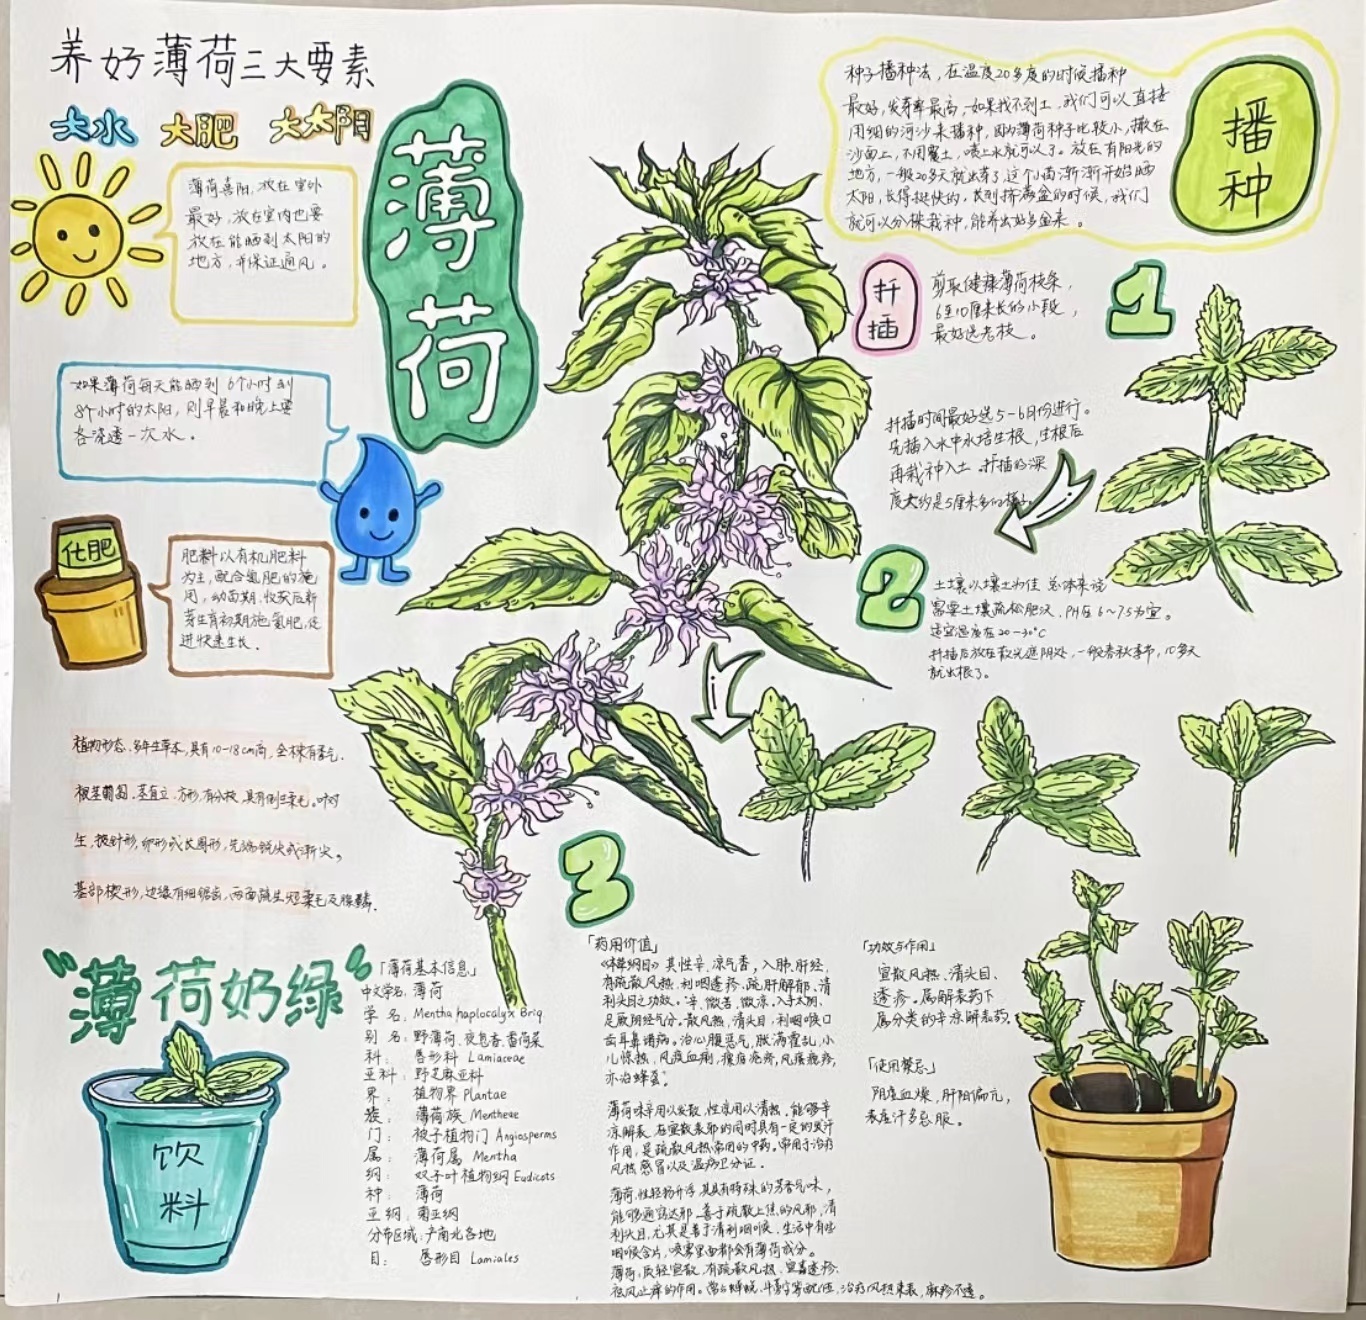 养好薄荷三大要素
大水 大肥 大太阳
薄荷
薄荷喜阳，放在室外
最好，放在室内也要
放在能晒到太阳的
地方，并保证通风。
如果薄荷每天能晒到6个小时到
8个小时的太阳，则早晨和晚上要
各浇透一次水。
化肥
肥料以有机肥料
为主，配合氮肥的施
用，幼苗期、收获后新
芽生育初期施氮肥，促
进快速生长。
播种
种子播种法，在温度20多度的时候播种
最好，发芽率最高，如果找不到土，我们可以直接
用细的河沙来播种，因为薄荷种子比较小，撒在
沙面上，不用覆土，喷上水就可以了。放在有阳光的
地方，一般20多天就出芽了，这个小苗渐渐开始晒
太阳，长得挺快的，长到挤满盆的时候，我们
就可以分株栽种，能养出好多盆来。
扦插
剪取健椽薄荷枝条，
6至10厘米长的小段，
最好选老枝。
1
扦插时间最好选5-6月份进行。
先插入水中水培生根，生根后
再栽种入土，扦插的深
度大约是5厘米多的样子。
2
土壤以壤土为佳 总体来说
需要土壤疏松肥沃，PH在6~7.5为宜。
适宜温度在20-30°C
扦插后放在散光遮阴处，一般春秋季节，10多天
就出根了。
3
植物形态、多年生草本，具有10-18cm高，全株有香气。
根茎匍匐、茎直立、方形，有分枝，具有倒生柔毛。叶对
生，披针形，卵形或长圆形，先端锐尖或渐尖。
基部楔形，边缘有细锯齿，两面疏生短柔毛及腺鳞。
“薄荷奶绿”
饮料
「薄荷基本信息」
中文学名：薄荷
学 名：Mentha haplocalyx Briq
别 名：野薄荷、夜息香、番荷菜
科： 唇形科 Lamiaceae
亚科：野芝麻亚科
界： 植物界 Plantae
族： 薄荷族 Mentheae
门： 被子植物门 Angiosperms
属： 薄荷属 Mentha
纲： 双子叶植物纲 Eudicots
种： 薄荷
亚纲：菊亚纲
分布区域：产南北各地
目： 唇形目 Lamiales
「药用价值」
《本草纲目》其性辛、凉气香，入肺、肝经，
有疏散风热、利咽透疹、疏肝解郁、清
利头目之功效。“辛、微苦、微凉，入手太阴、
足厥阴经气分。散风热，清头目，利咽喉口
齿耳鼻诸病。治心腹恶气，胀满霍乱，小
儿惊热，风痰血痢，瘰疬疮疥，风瘙瘾疹，
亦治蜂虿。
薄荷味辛用以发散，性凉用以清热，能够辛
凉解表，在宣散表邪的同时具有一定的发汗
作用，是疏散风热常用的中药。常用于治疗
风热感冒以及温病卫分证。
薄荷，性轻扬升浮，其具有特殊的芳香气味，
能够通窍达邪，善于疏散上焦的风邪，清
利头目，尤其是善于清利咽喉，生活中有些
咽喉含片，喷雾里面都会有薄荷成分。
薄荷，质轻宣散，有疏散风热、宣毒透疹、
祛风止痒的作用。常与蝉蜕、牛蒡子等配伍，治疗风热束表，麻疹不透。
「功效与作用」
宣散风热、清头目、
透疹。属解表药下
属分类的辛凉解表药。
「使用禁忌」
阴虚血燥，肝阳偏亢，
表虚汗多忌服。